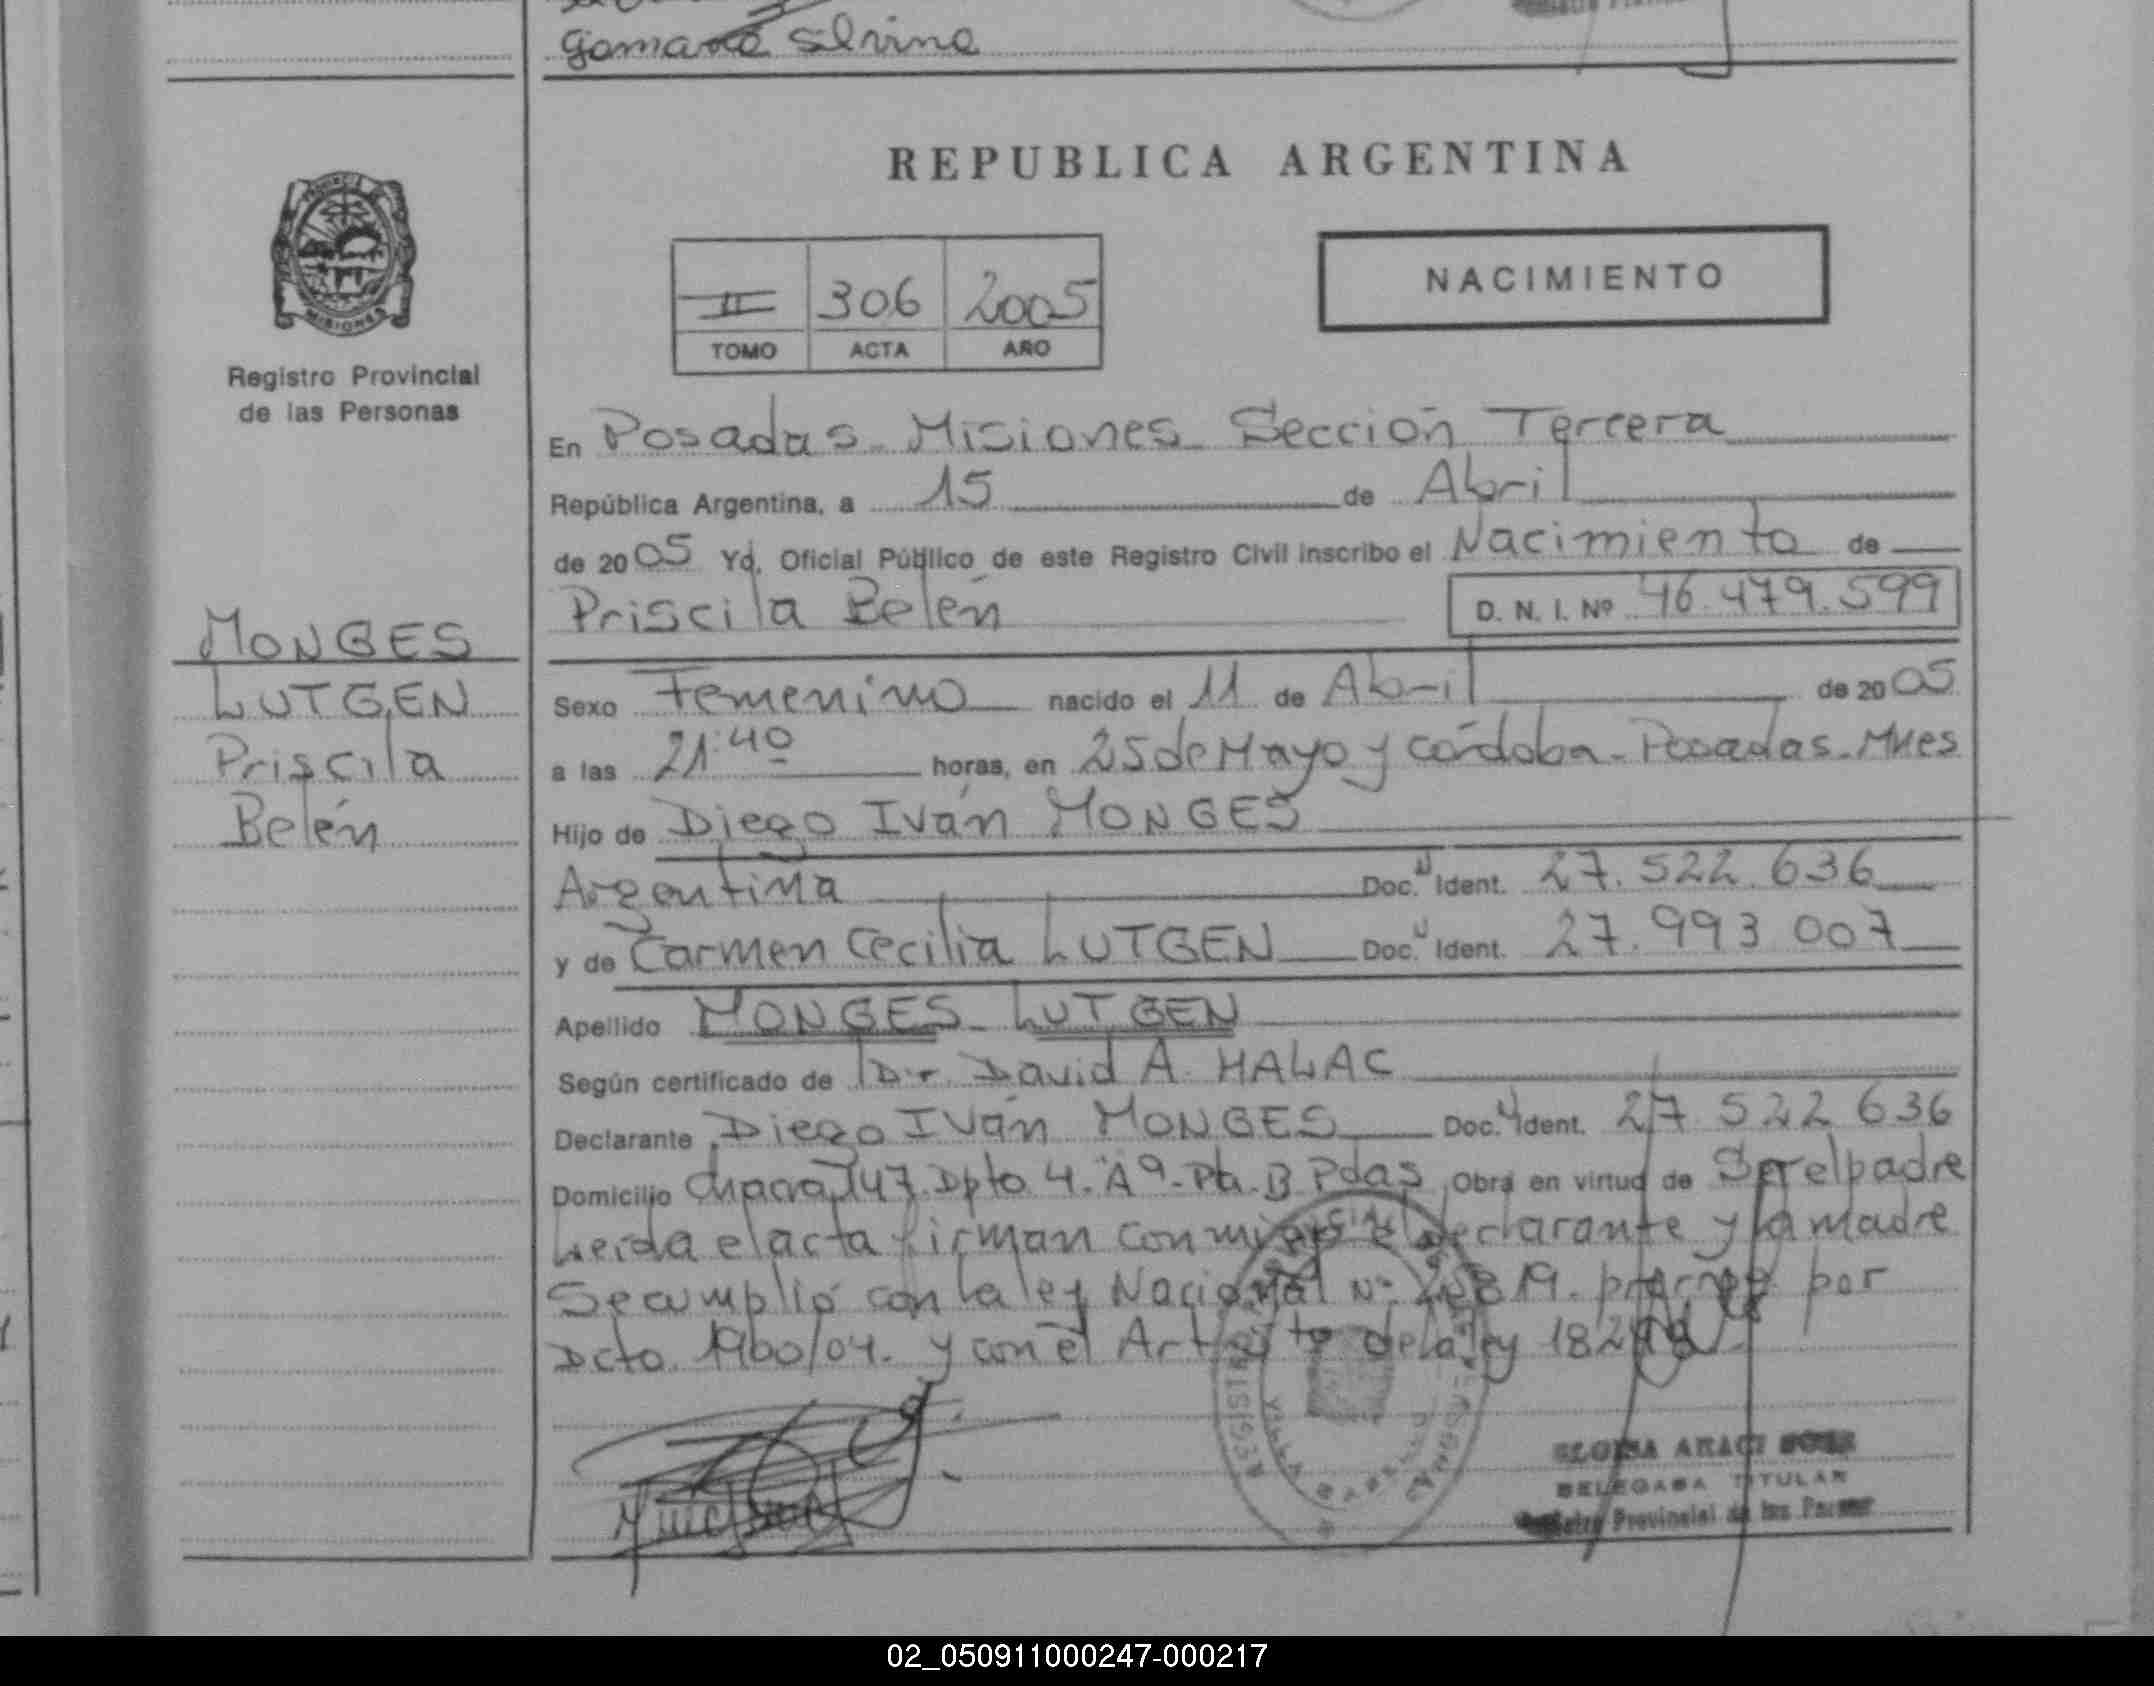 Gamarra Silvina
REPUBLICA ARGENTINA
NACIMIENTO
II 306 2005
TOMO ACTA AÑO
Registro Provincial
de las Personas
MISIONES
MONGES
LUTGEN
Priscila
Belén
En Posadas - Misiones - Sección Tercera
República Argentina, a 15 de Abril
de 2005 Yo, Oficial Público de este Registro Civil inscribo el Nacimiento de
Priscila Belén D. N. I. Nº 46.479.599
Sexo Femenino nacido el 11 de Abril de 2005
a las 21:40 horas, en 25 de Mayo y Córdoba - Posadas - Mnes
Hijo de Diego Iván MONGES
Argentina Doc. U Ident. 27.522.636
y de Carmen Cecilia LUTGEN Doc. U Ident. 27.993 007
Apellido MONGES LUTGEN
Según certificado de Dr. David A. HALAC
Declarante Diego Iván MONGES Doc. U Ident. 27 522 636
Domicilio Chacra 147. Dpto 4. Pdas Obra en virtud de Ser el padre
Leída el acta firman conmigo el declarante y la madre
Se cumplió con la ley Nacional Nº 25819. por
Dcto 1960/04. y con el Art de la ley
DELEGADA TITULAR
Registro Provincial de las Personas
02_050911000247-000217